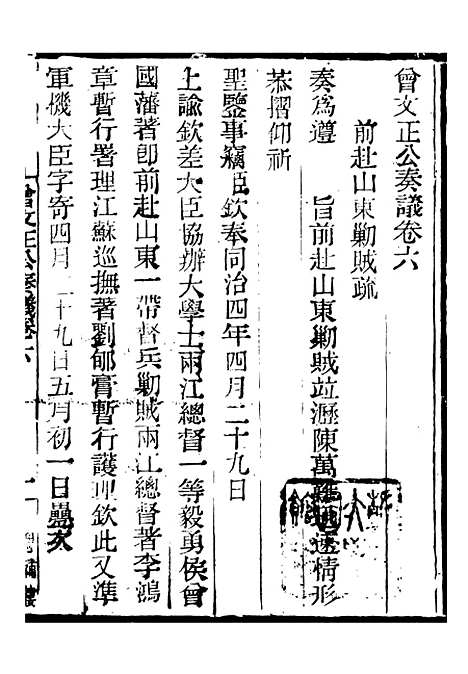 曾文正公奏議卷六
前赴山東勦賊疏
奏爲遵　旨前赴山東勦賊竝瀝陳萬難迅速情形
恭摺仰祈
聖鑒事竊臣欽奉同治四年四月二十九日
上諭欽差大臣協辦大學士兩江總督一等毅勇侯曾
國藩著卽前赴山東一帶督兵勦賊兩江總督著李鴻
章暫行署理江蘇巡撫著劉郇膏暫行護理欽此又準
軍機大臣字寄四月二十九日五月初一日疊次
曾文正公奏議卷六
一